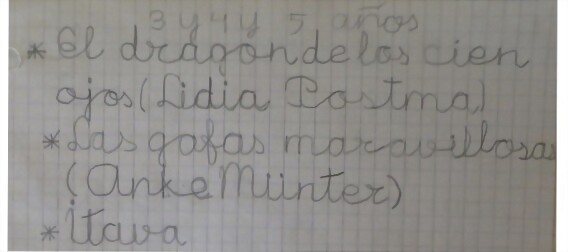 3 y 4 y 5 años
* El dragon de los cien
ojos (Lidia Postma)
* Las gafas maravillosas
(Anke Münter)
* Itawa